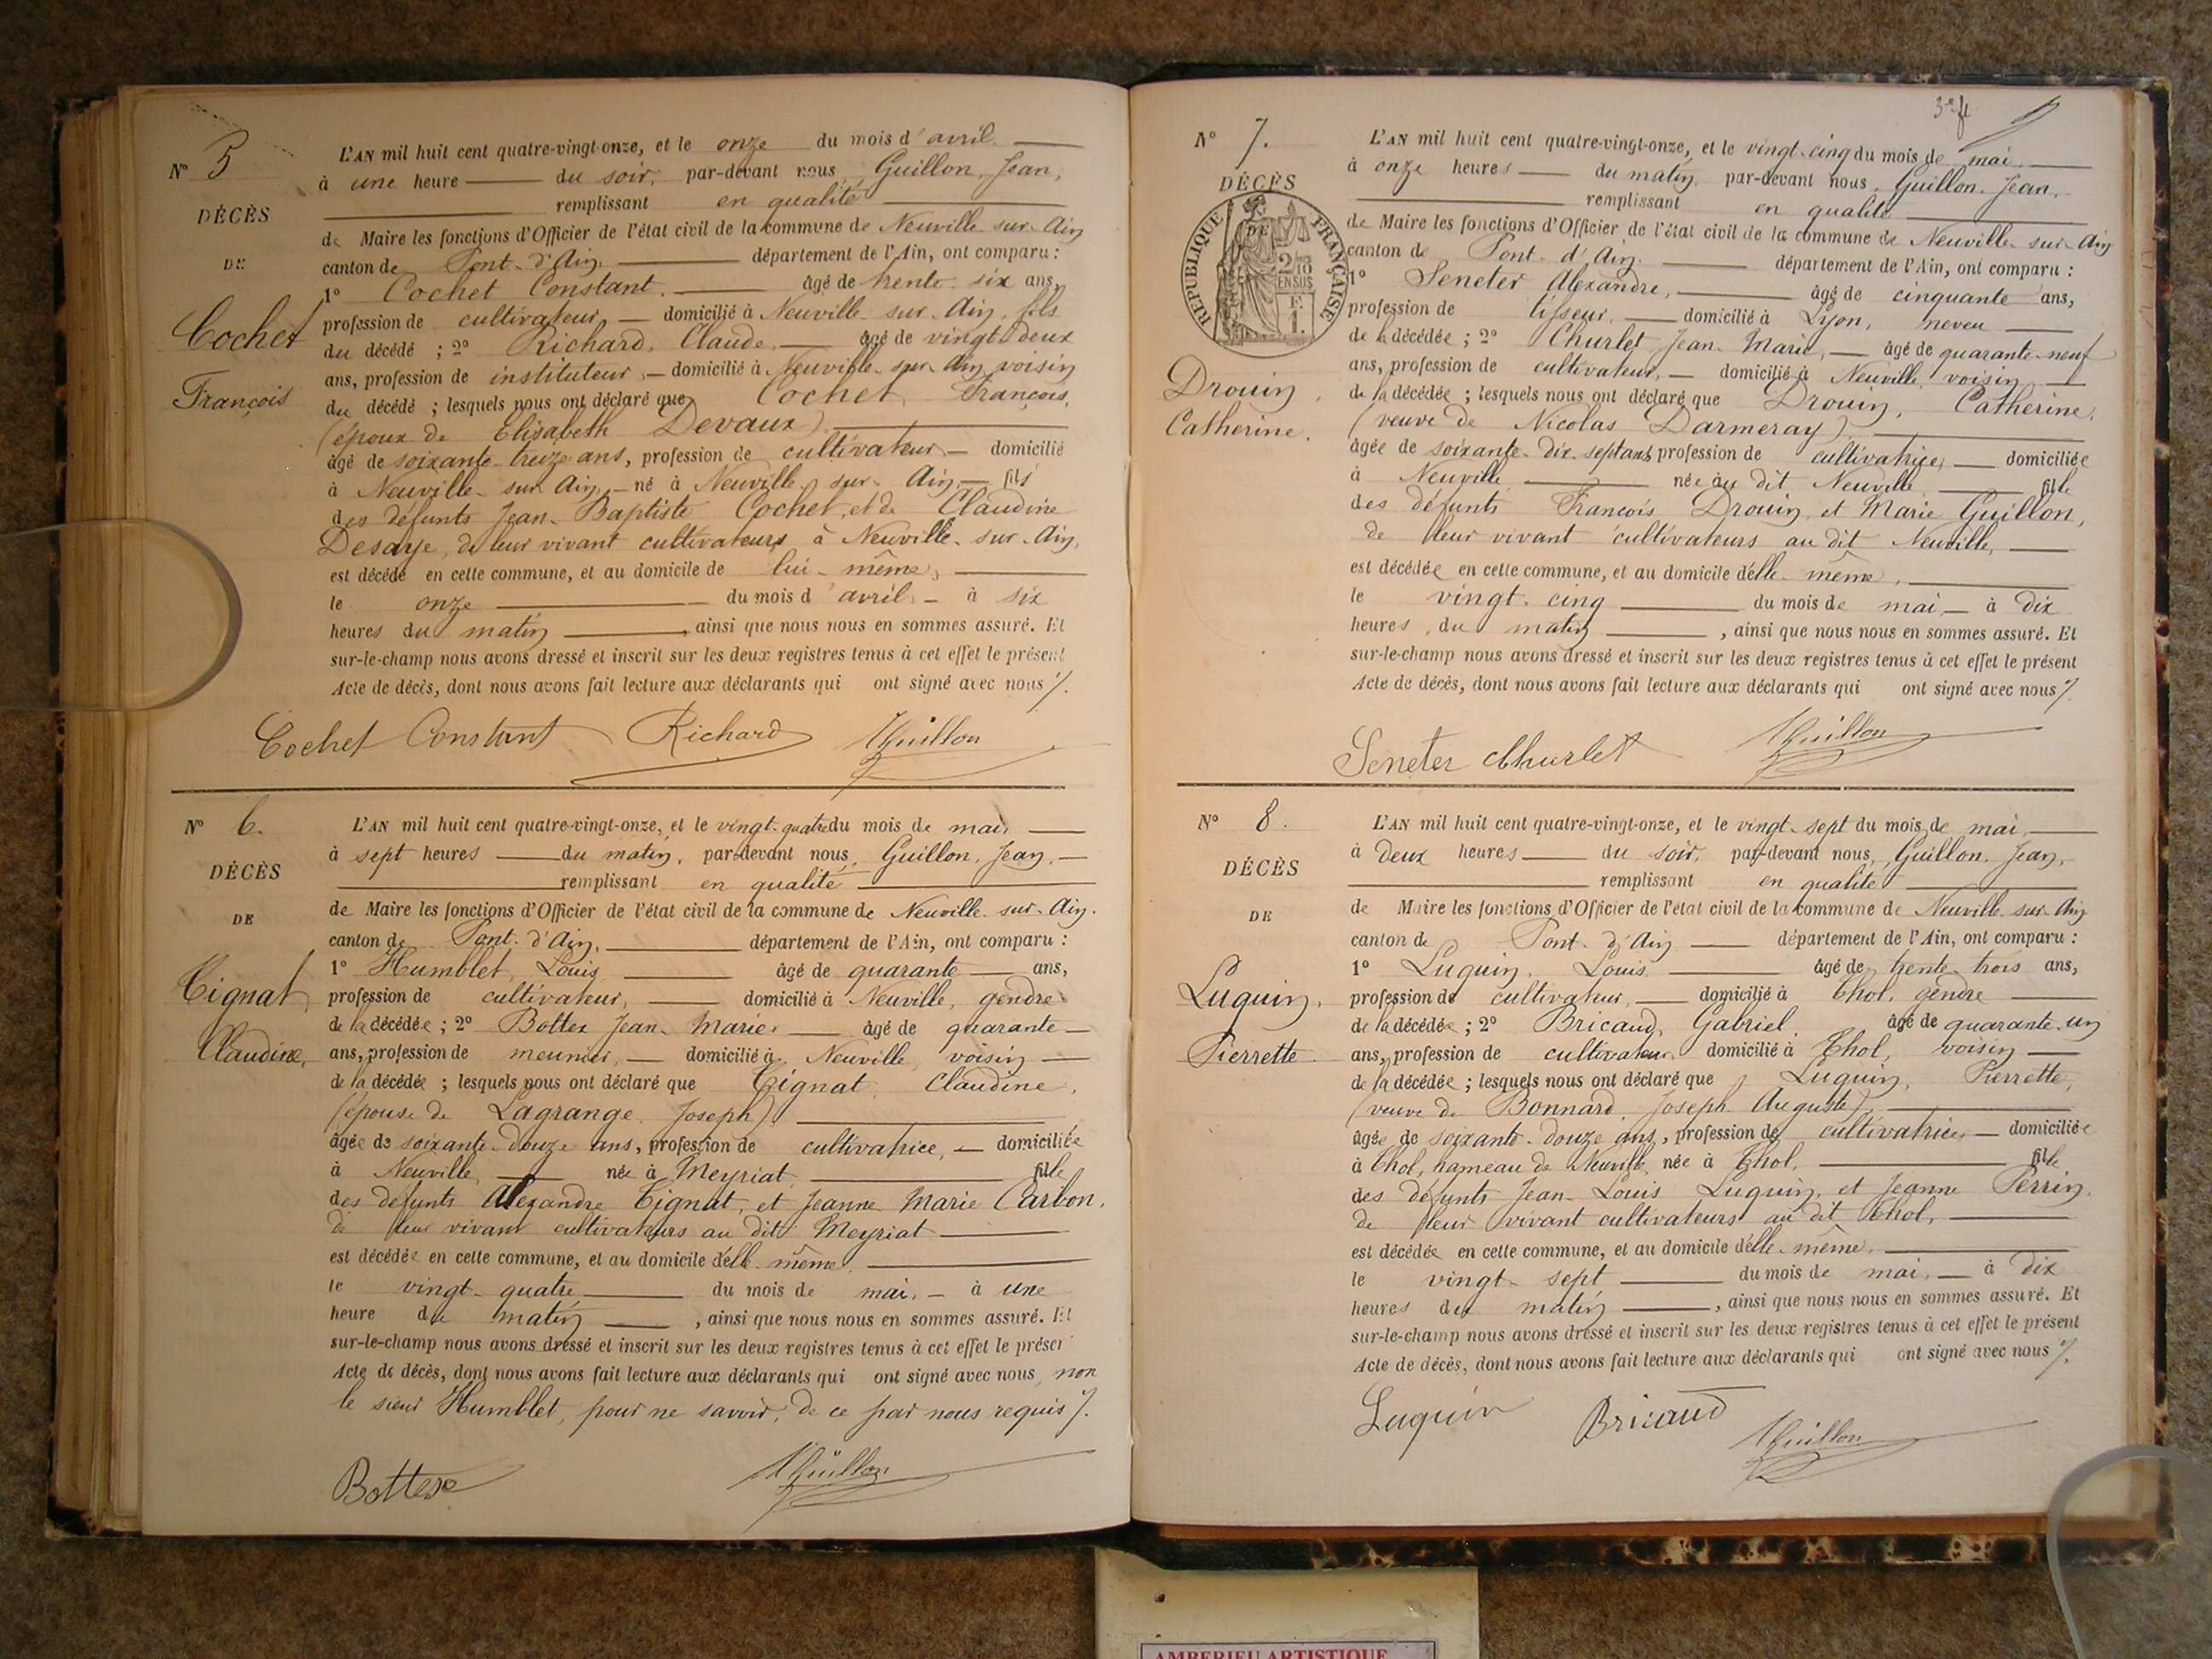 N° 5
DÉCÈS
DE
Cochet
François
L'AN mil huit cent quatre-vingt-onze, et le onze du mois d'avril
à une heure du soir, par-devant nous, Guillon, Jean,
remplissant en qualité
de Maire les fonctions d'Officier de l'état civil de la commune de Neuville-sur-Ain
canton de Pont-d'Ain, département de l'Ain, ont comparu :
1° Cochet Constant, âgé de trente-six ans,
profession de cultivateur, domicilié à Neuville-sur-Ain, fils
du décédé ; 2° Richard, Claude, âgé de vingt-deux
ans, profession de instituteur, domicilié à Neuville-sur-Ain, voisin
du décédé ; lesquels nous ont déclaré que Cochet, François,
(époux de Elisabeth Devaux),
âgé de soixante-treize ans, profession de cultivateur, domicilié
à Neuville-sur-Ain, né à Neuville-sur-Ain, fils
des défunts Jean-Baptiste Cochet, et de Claudine
Desaye, de leur vivant cultivateurs à Neuville-sur-Ain,
est décédé en cette commune, et au domicile de lui-même,
le onze du mois d'avril, à six
heures du matin, ainsi que nous nous en sommes assuré. Et
sur-le-champ nous avons dressé et inscrit sur les deux registres tenus à cet effet le présent
Acte de décès, dont nous avons fait lecture aux déclarants qui ont signé avec nous
Cochet Constant Richard Guillon
N° 6.
DÉCÈS
DE
Tignat
Claudine,
L'AN mil huit cent quatre-vingt-onze, et le vingt-quatre du mois de mai,
à sept heures du matin, par-devant nous, Guillon, Jean,
remplissant en qualité
de Maire les fonctions d'Officier de l'état civil de la commune de Neuville-sur-Ain.
canton de Pont-d'Ain, département de l'Ain, ont comparu :
1° Humblet, Louis, âgé de quarante ans,
profession de cultivateur, domicilié à Neuville, gendre
de la décédée ; 2° Bottex Jean-Marie, âgé de quarante
ans, profession de meunier, domicilié à Neuville, voisin
de la décédée ; lesquels nous ont déclaré que Tignat, Claudine,
(épouse de Lagrange, Joseph),
âgée de soixante-douze ans, profession de cultivatrice, domiciliée
à Neuville, née à Meyriat, fille
des défunts Alexandre Tignat, et Jeanne Marie Carbon,
de leur vivant cultivateurs au dit Meyriat
est décédée en cette commune, et au domicile d'elle-même,
le vingt-quatre du mois de mai, à une
heure du matin, ainsi que nous nous en sommes assuré. Et
sur-le-champ nous avons dressé et inscrit sur les deux registres tenus à cet effet le présen
Acte de décès, dont nous avons fait lecture aux déclarants qui ont signé avec nous, non
le sieur Humblet, pour ne savoir, de ce par nous requis
Bottex Guillon
3e f.
N° 7.
DÉCÈS
DE
RÉPUBLIQUE FRANÇAISE
Drouin,
Catherine.
L'AN mil huit cent quatre-vingt-onze, et le vingt-cinq du mois de mai
à onze heures du matin, par-devant nous, Guillon, Jean,
remplissant en qualité
de Maire les fonctions d'Officier de l'état civil de la commune de Neuville-sur-Ain
canton de Pont-d'Ain, département de l'Ain, ont comparu :
1° Seneter Alexandre, âgé de cinquante ans,
profession de tisseur, domicilié à Lyon, neveu
de la décédée ; 2° Churlet Jean-Marie, âgé de quarante-neuf
ans, profession de cultivateur, domicilié à Neuville, voisin
de la décédée ; lesquels nous ont déclaré que Drouin, Catherine,
(veuve de Nicolas Darmeray),
âgée de soixante-dix-sept ans, profession de cultivatrice, domiciliée
à Neuville née au dit Neuville fille
des défunts François Drouin, et Marie Guillon,
de leur vivant cultivateurs au dit Neuville,
est décédée en cette commune, et au domicile d'elle-même,
le vingt-cinq du mois de mai, à dix
heures du matin, ainsi que nous nous en sommes assuré. Et
sur-le-champ nous avons dressé et inscrit sur les deux registres tenus à cet effet le présent
Acte de décès, dont nous avons fait lecture aux déclarants qui ont signé avec nous
Seneter Churlet Guillon
N° 8.
DÉCÈS
DE
Luquin,
Pierrette
L'AN mil huit cent quatre-vingt-onze, et le vingt-sept du mois de mai,
à deux heures du soir, par-devant nous, Guillon, Jean,
remplissant en qualité
de Maire les fonctions d'Officier de l'état civil de la commune de Neuville-sur-Ain
canton de Pont-d'Ain département de l'Ain, ont comparu :
1° Luquin, Louis, âgé de trente-trois ans,
profession de cultivateur, domicilié à Thol, gendre
de la décédée ; 2° Bricaud, Gabriel, âgé de quarante-un
ans, profession de cultivateur domicilié à Thol, voisin
de la décédée ; lesquels nous ont déclaré que Luquin, Pierrette,
(veuve de Bonnard, Joseph Auguste),
âgée de soixante-douze ans, profession de cultivatrice, domiciliée
à Thol, hameau de Neuville, née à Thol, fille
des défunts Jean-Louis Luquin, et Jeanne Perrin,
de leur vivant cultivateurs au dit Thol,
est décédée en cette commune, et au domicile d'elle-même,
le vingt-sept du mois de mai, à dix
heures du matin, ainsi que nous nous en sommes assuré. Et
sur-le-champ nous avons dressé et inscrit sur les deux registres tenus à cet effet le présent
Acte de décès, dont nous avons fait lecture aux déclarants qui ont signé avec nous
Luquin Bricaud Guillon
AMBERIEU ARTISTIQUE